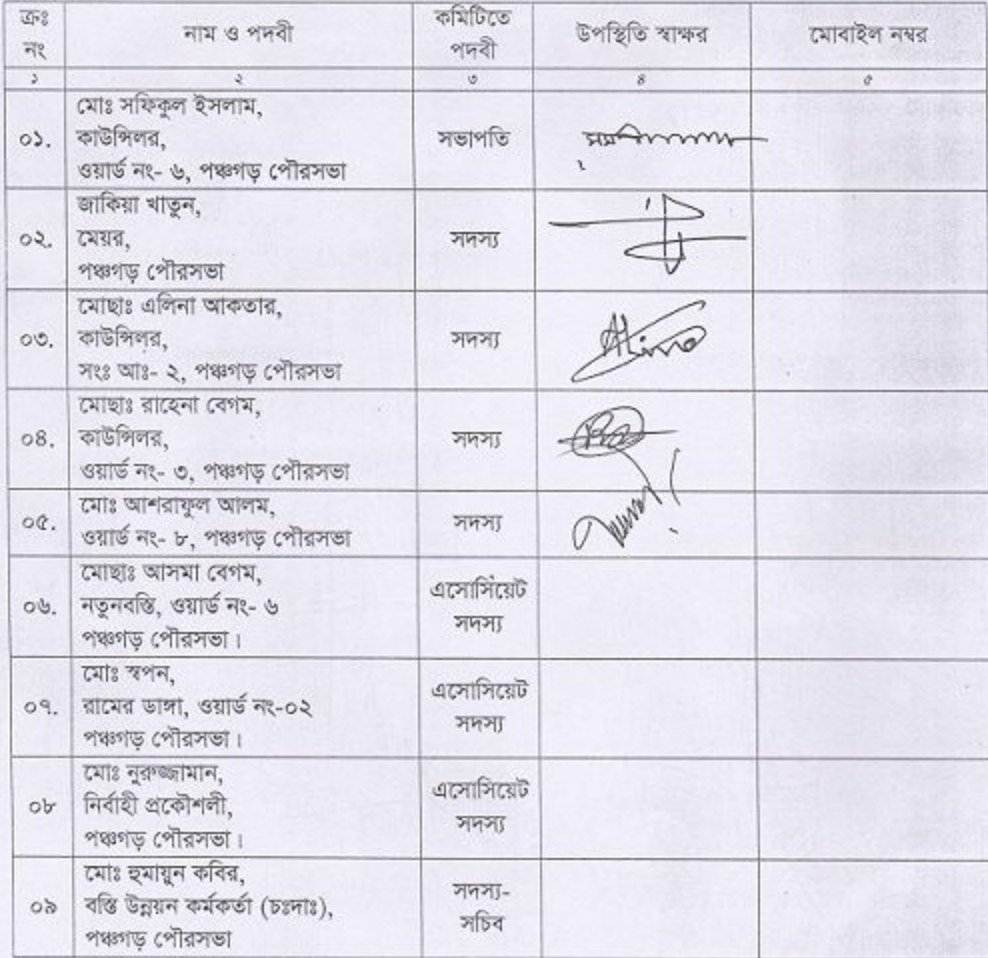 ক্রঃ নং নাম ও পদবী কমিটিতে পদবী উপস্থিতি স্বাক্ষর মোবাইল নম্বর
১ ২ ৩ ৪ ৫
০১. মোঃ সফিকুল ইসলাম,
কাউন্সিলর,
ওয়ার্ড নং- ৬, পঞ্চগড় পৌরসভা
সভাপতি
০২. জাকিয়া খাতুন,
মেয়র,
পঞ্চগড় পৌরসভা
সদস্য
০৩. মোছাঃ এলিনা আকতার,
কাউন্সিলর,
সংঃ আঃ- ২, পঞ্চগড় পৌরসভা
সদস্য
Alina
০৪. মোছাঃ রাহেনা বেগম,
কাউন্সিলর,
ওয়ার্ড নং- ৩, পঞ্চগড় পৌরসভা
সদস্য
০৫. মোঃ আশরাফুল আলম,
ওয়ার্ড নং- ৮, পঞ্চগড় পৌরসভা
সদস্য
০৬. মোছাঃ আসমা বেগম,
নতুনবস্তি, ওয়ার্ড নং- ৬
পঞ্চগড় পৌরসভা।
এসোসিয়েট
সদস্য
০৭. মোঃ স্বপন,
রামের ডাঙ্গা, ওয়ার্ড নং-০২
পঞ্চগড় পৌরসভা।
এসোসিয়েট
সদস্য
০৮ মোঃ নুরুজ্জামান,
নির্বাহী প্রকৌশলী,
পঞ্চগড় পৌরসভা।
এসোসিয়েট
সদস্য
০৯ মোঃ হুমায়ুন কবির,
বস্তি উন্নয়ন কর্মকর্তা (চঃদাঃ),
পঞ্চগড় পৌরসভা
সদস্য-
সচিব